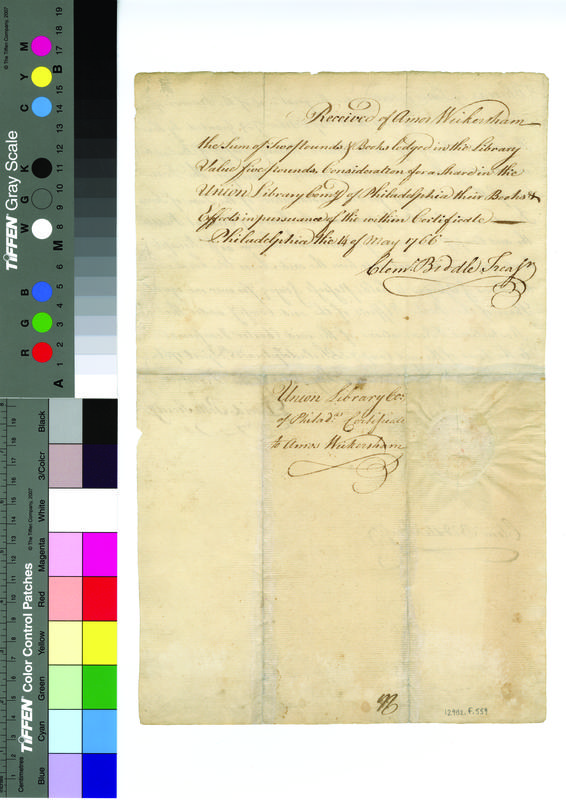 Received of Amos Wickersham
the Sum of Two Pounds & Books lodged in the Library
Value five Pounds, Consideration for a Share in the
Union Library Compy of Philadelphia their Books &
Effects in pursuance of the within Certificate
Philadelphia the 14 of May 1766
Clemt Biddle Treasr
Union Library Co:
of Philada Certificate
to Amos Wickersham
12982.F.559
TIFFEN Gray Scale
© The Tiffen Company, 2007
R G B W G K C Y M
A 1 2 3 4 5 6 M 8 9 10 11 12 13 14 15 B 17 18 19
TIFFEN Color Control Patches
© The Tiffen Company, 2007
Centimetres
Blue Cyan Green Yellow Red Magenta White 3/Color Black